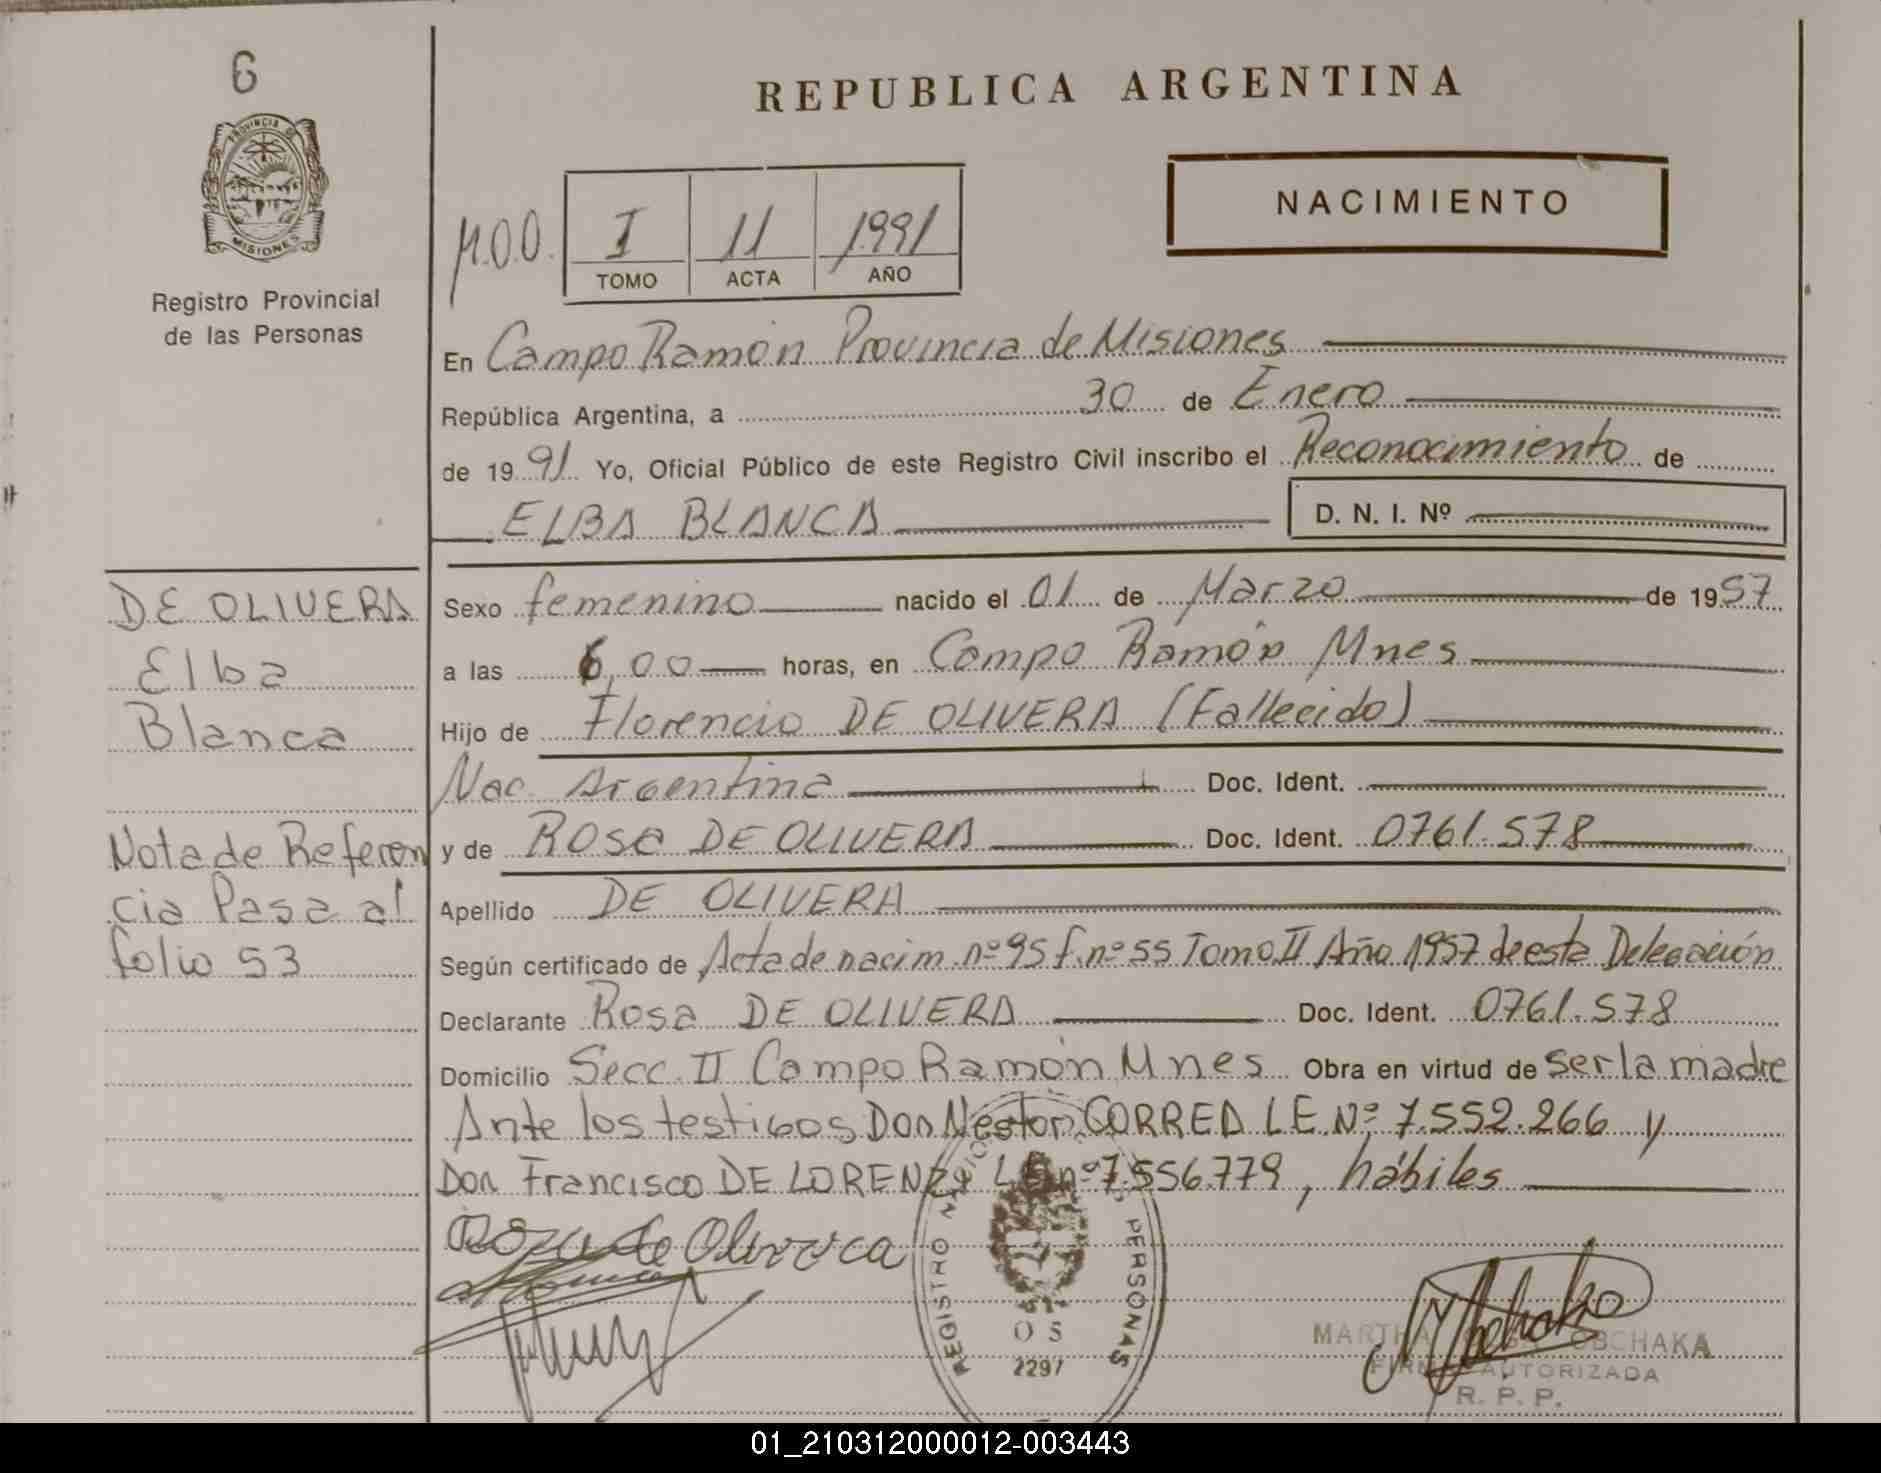 6
PROVINCIA DE
MISIONES
Registro Provincial
de las Personas
REPUBLICA ARGENTINA
NACIMIENTO
I 11 1991
TOMO ACTA AÑO
En Campo Ramón Provincia de Misiones
República Argentina, a 30 de Enero
de 1991 Yo, Oficial Público de este Registro Civil inscribo el Reconocimiento de
ELBA BLANCA D. N. I. Nº
DE OLIVERA
Elba
Blanca
Nota de Referen
cia Pasa al
folio 53
Sexo femenino nacido el 01 de Marzo de 1957
a las 6,00 horas, en Campo Ramón Mnes
Hijo de Florencio DE OLIVERA (Fallecido)
Nac. Argentina Doc. Ident.
y de Rosa DE OLIVERA Doc. Ident. 0761.578
Apellido DE OLIVERA
Según certificado de Acta de nacim. nº 95 f. nº 55 Tomo II Año 1957 de esta Delegación
Declarante Rosa DE OLIVERA Doc. Ident. 0761.578
Domicilio Secc. II Campo Ramón Mnes Obra en virtud de ser la madre
Ante los testigos Don Nestor CORREA L.E. Nº 7.552.266 y
Don Francisco DE LORENZI L.E. nº 7.556.779, hábiles
Roza de Olivera
REGISTRO PERSONAS
2297
MARTHA OBCHAKA
FIRMA AUTORIZADA
R. P. P.
01_210312000012-003443